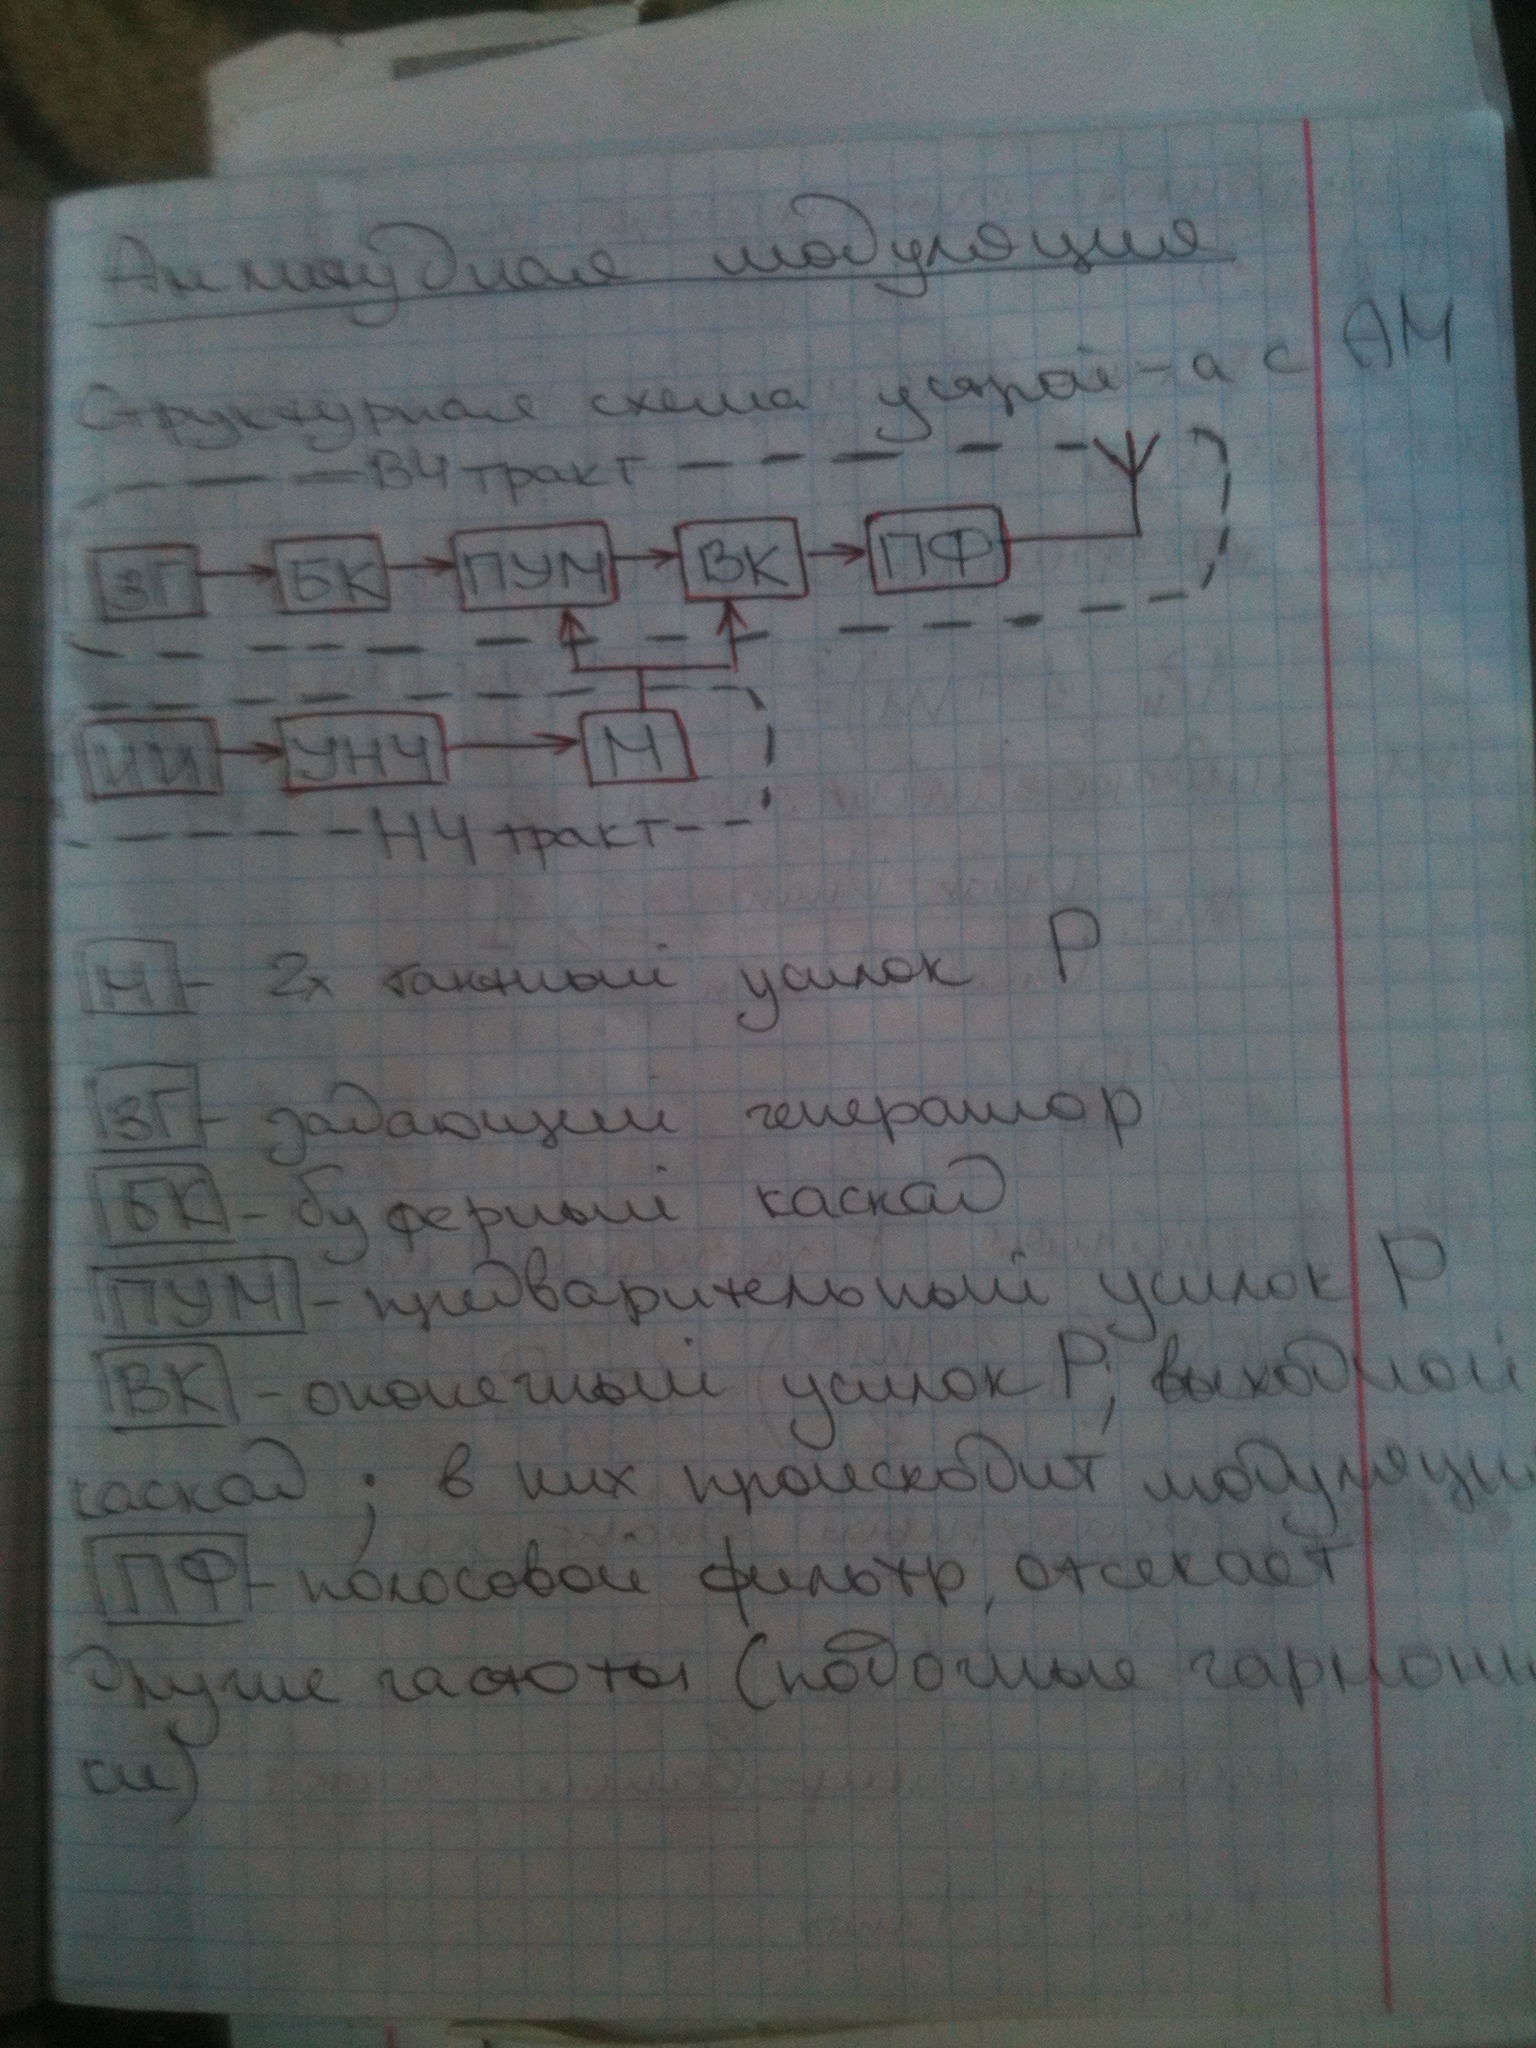 Амплитудная модуляция
Структурная схема устрой-а с АМ
ВЧ тракт
ЗГ БК ПУМ ВК ПФ
ИИ УНЧ М
НЧ тракт
М - 2х тактный усилок Р
ЗГ - задающий генератор
БК - буферный каскад
ПУМ - предварительный усилок Р
ВК - оконечный усилок Р, выходной
каскад; в них происходит модуляци
ПФ - полосовой фильтр, отсекает
другие частоты (побочные гармони
ки)